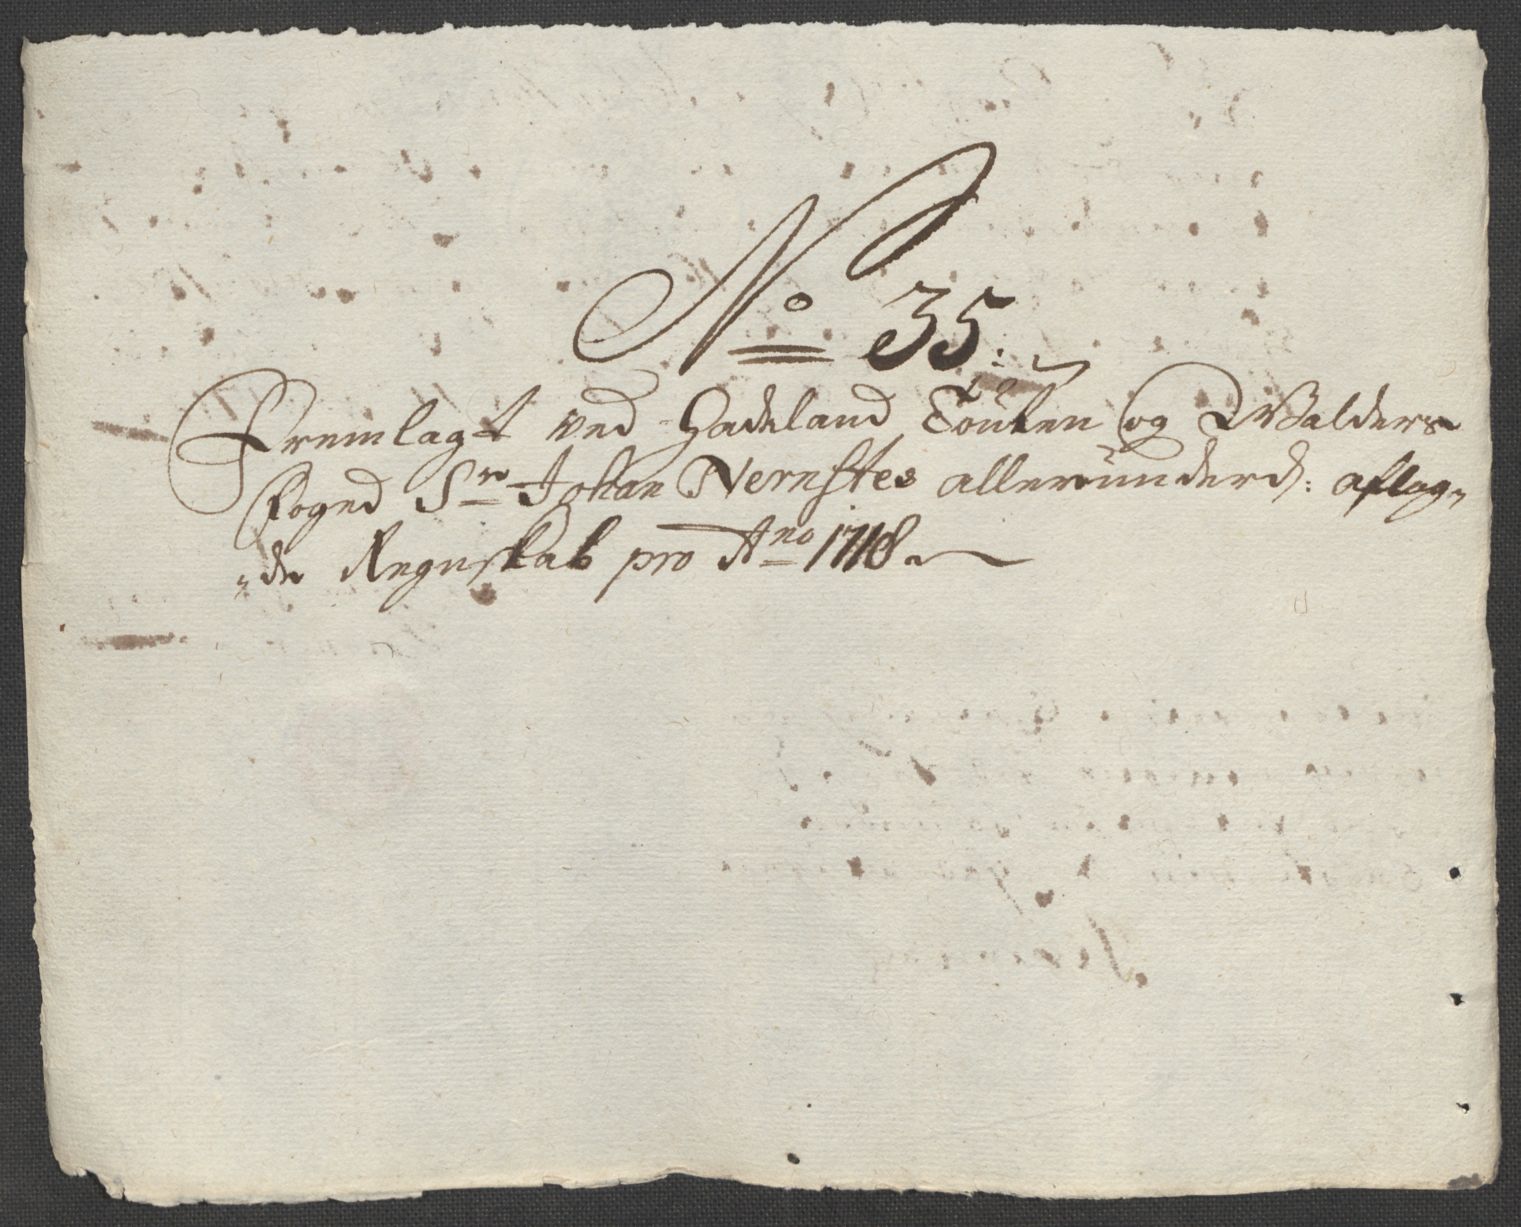 No 35.
Fremlagt ved Hadeland Toten og Walders
Foged Sr Johan Nernstes allerunderd: aflag„
„de Regnskab pro Ano 1718.